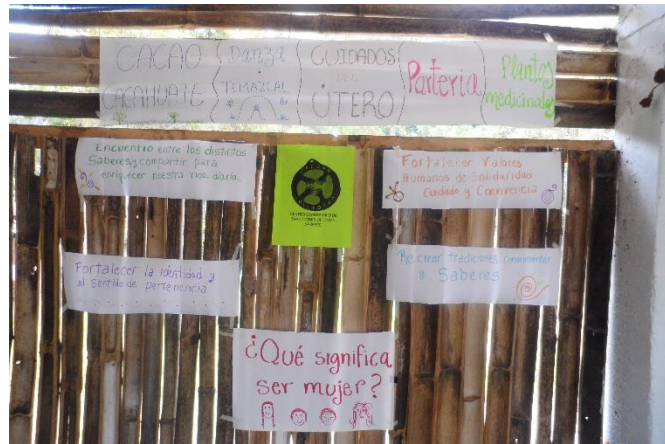 CACAO
CACAHUATE
Danza
TEMAZCAL
CUIDADOS
DEL
ÚTERO
Partería
Plantas
medicinales
Encuentro entre los distintos
Saberes y compartir para
enriquecer nuestra vida diaria.
Fortalecer Valores
Humanos de Solidaridad
Cuidado y Convivencia
Fortalecer la identidad y
el sentido de pertenencia
Recrear tradiciones
y Saberes
¿Qué significa
ser mujer?